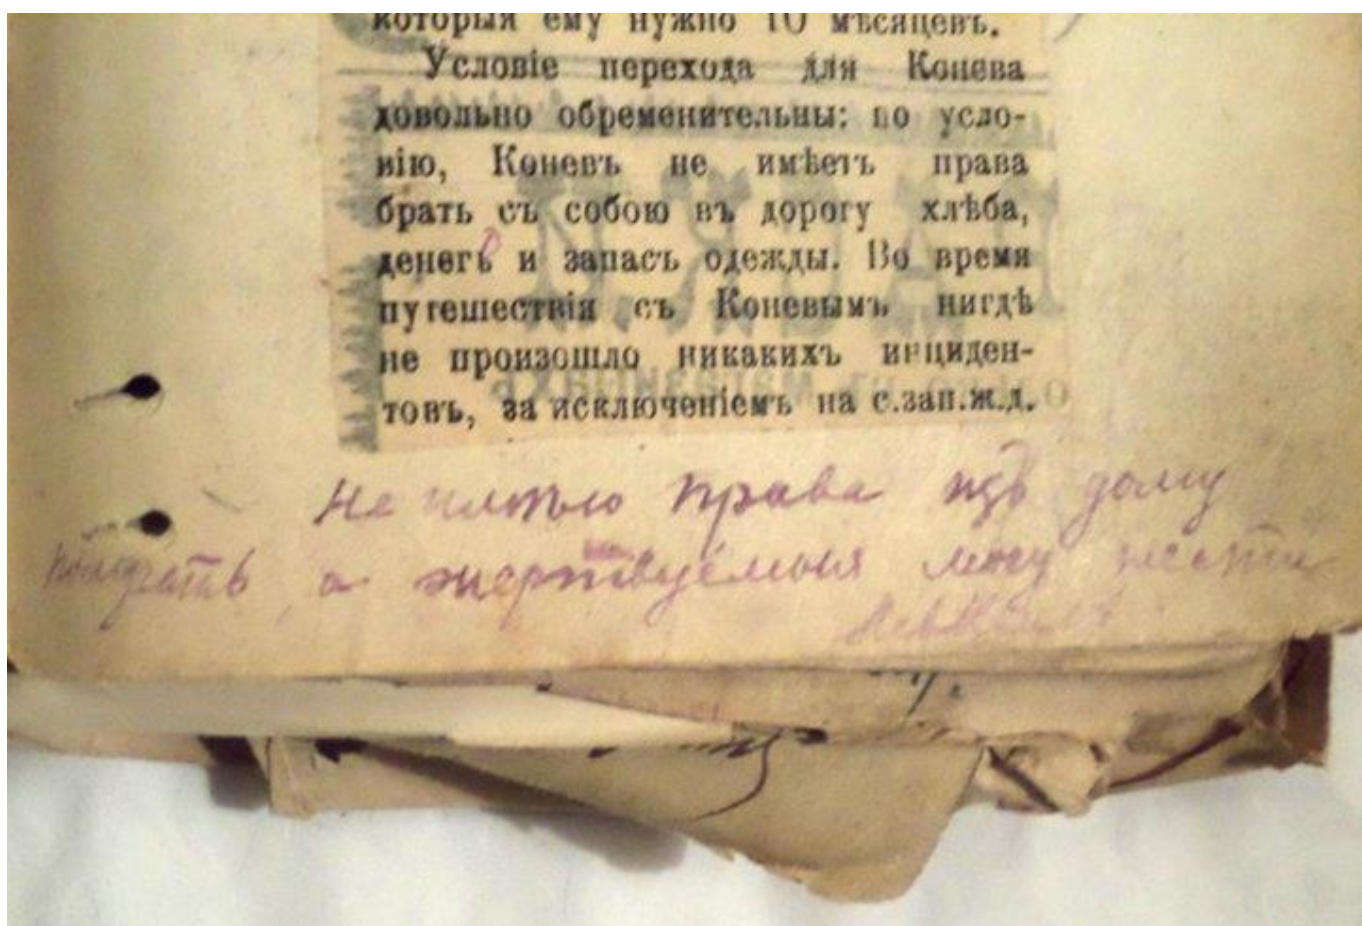 который ему нужно 10 мѣсяцевъ.
Условіе перехода для Конева
довольно обременительны: по усло-
вію, Коневъ не имѣетъ права
брать съ собою въ дорогу хлѣба,
денегъ и запасъ одежды. Во время
путешествія съ Коневымъ нигдѣ
не произошло никакихъ инциден-
товъ, за исключеніемъ на с.зап.ж.д.
Не имѣю права изъ дому
а жертвуемыя могу